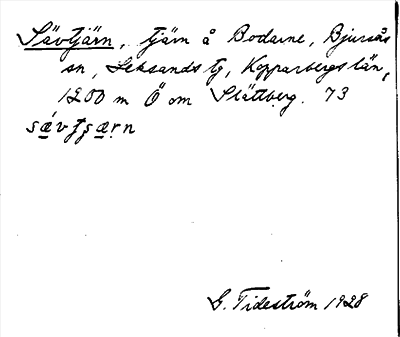 Sävtjärn, tjärn å Bodarne, Bjursås
sn, Leksands tg, Kopparbergs län,
1200 m Ö om Slättberg. 73
sǽvtʂæṛn
G. Tideström 1928